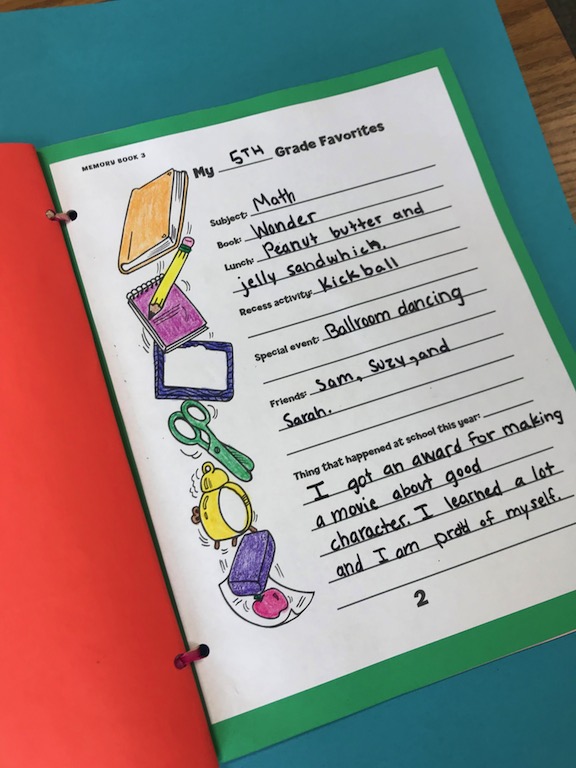 MEMORY BOOK 3
My 5TH Grade Favorites
Subject: Math
Book: Wonder
Lunch: Peanut butter and
jelly sandwhich.
Recess activity: Kickball
Special event: Ballroom dancing
Friends: Sam, Suzy, and
Sarah.
Thing that happened at school this year:
I got an award for making
a movie about good
character. I learned a lot
and I am proud of myself.
2